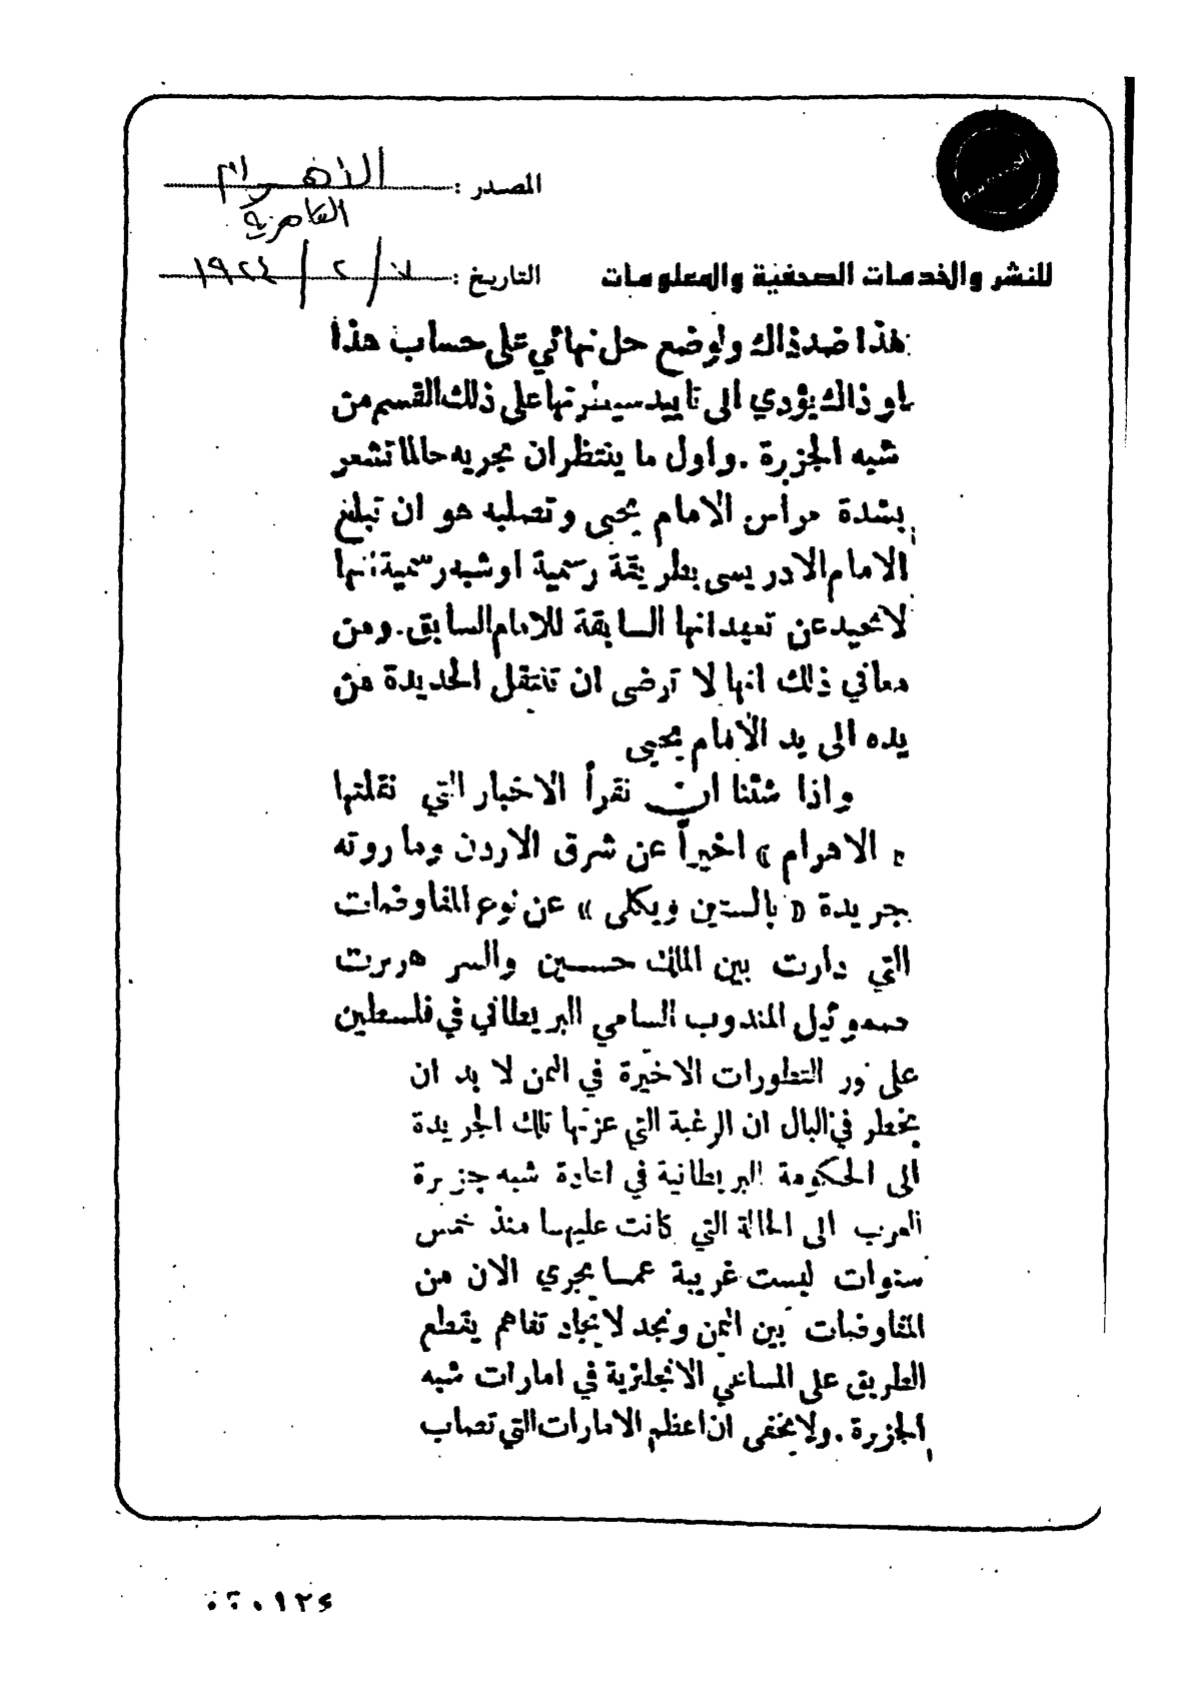 المصدر : الأهرام
القاهرية
للنشر والخدمات الصحفية والمعلومات
التاريخ : / ٢ / ١٩٢٤
هذا ضد ذاك ولوضع حل نهائي على حساب هذا
او ذاك يؤدي الى تاييد سيطرتها على ذلك القسم من
شبه الجزرة . واول ما ينتظر ان تجريه حالما تشعر
بشدة مراس الامام يحيى وتصلبه هو ان تبلغ
الامام الادريسى بطريقة رسمية او شبه رسمية انها
لا تحيد عن تعهداتها السابقة للامام السابق . ومن
معاني ذلك انها لا ترضى ان تنتقل الحديدة من
يده الى يد الامام يحيى
واذا شئنا ان نقرأ الاخبار التي نقلتها
« الاهرام » اخيراً عن شرق الاردن وما روته
جريدة « بالستين ويكلى » عن نوع المفاوضات
التي دارت بين الملك حسين والسر هربرت
صموئيل المندوب السامي البريطاني في فلسطين
على نور التطورات الاخيرة في اليمن لا بد ان
يخطر في البال ان الرغبة التي عزتها تلك الجريدة
الى الحكومة البريطانية في اعادة شبه جزيرة
العرب الى الحالة التي كانت عليها منذ خمس
سنوات ليست غريبة عما يجري الان من
المفاوضات بين اليمن ونجد لايجاد تفاهم يقطع
الطريق على المساعي الانجليزية في امارات شبه
الجزرة . ولا يخفى ان اعظم الامارات التي تصاب